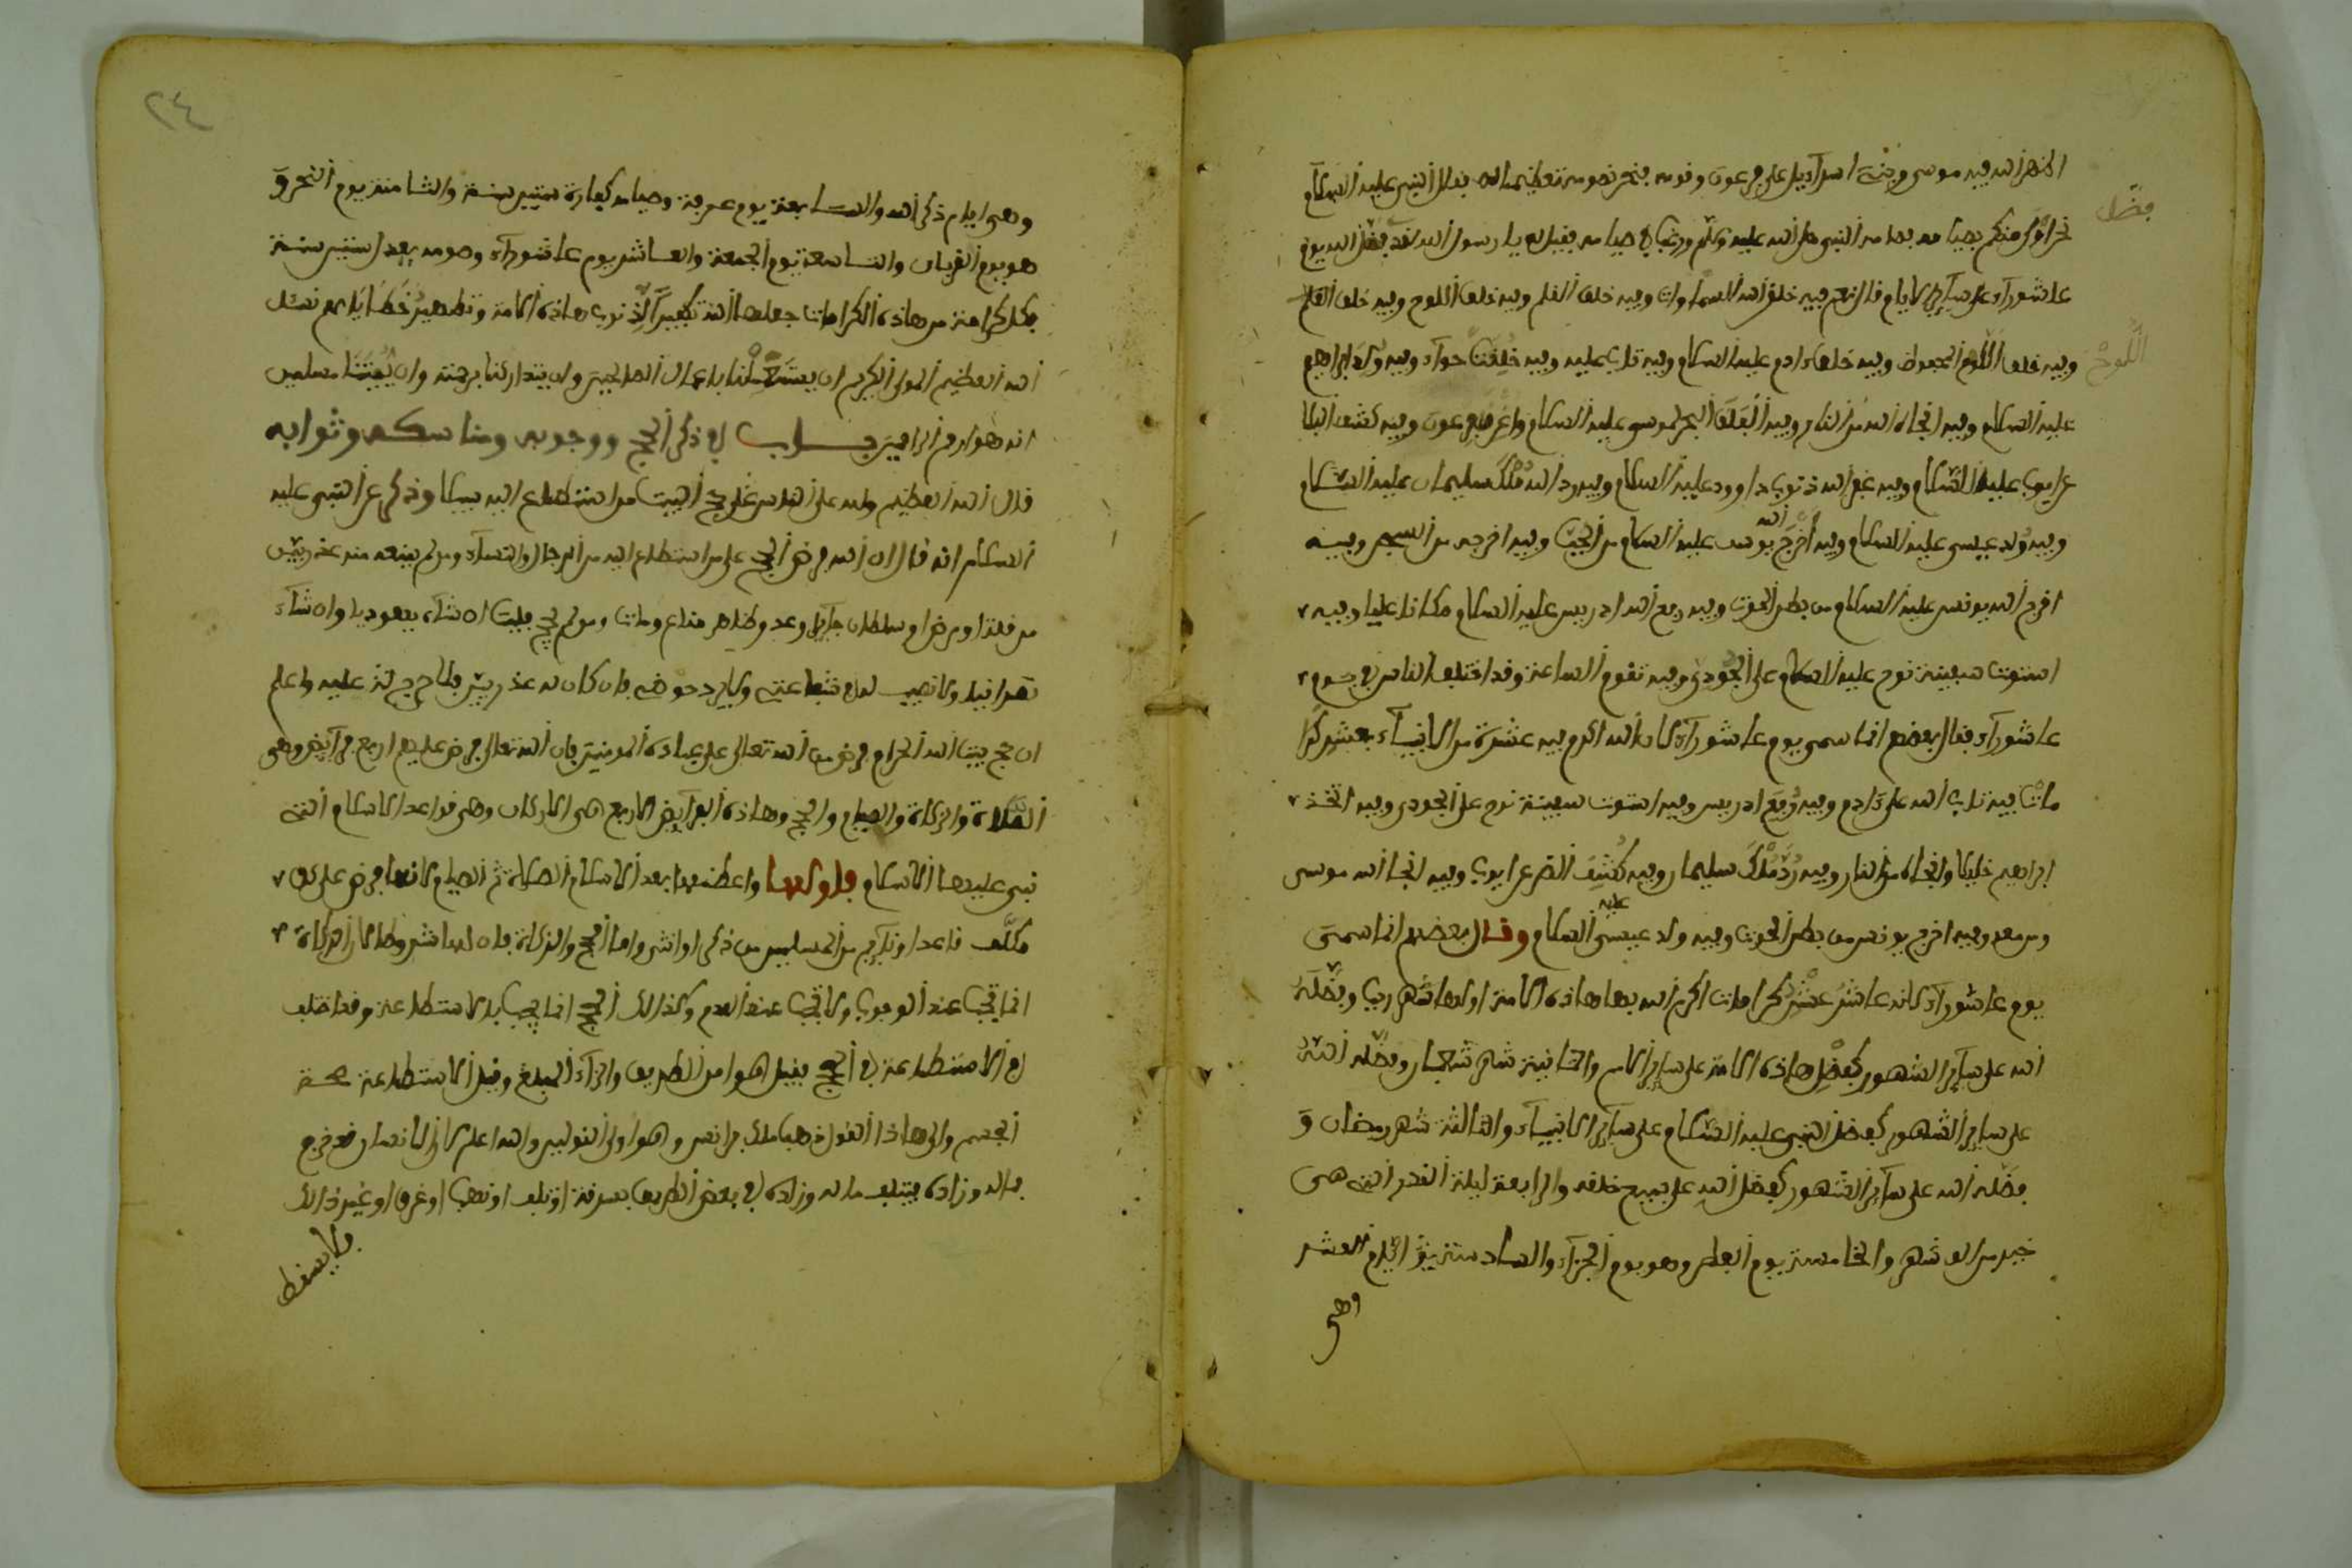 اظهر الله فيه موسى وبني اسرآءيل على فرعون وقومه فنحن نصومه تعظيما له فقال النبي عليه السلام
نحن اولى منكم بصيامه فصامه النبي صلى الله عليه وسلم ورغب في صيامه فقيل له يا رسول الله لقد فضل الله يوم
فضل
عاشورآء على سآئر الايام قال نعم فيه خلق الله السماوات وفيه خلق القلم وفيه خلق اللوح وفيه خلق القلم
وفيه خلق اللوح المحفوظ وفيه خلق ءادم عليه السلام وفيه تاب عليه وفيه خلقت حوآء وفيه ولد ابراهيم
اللوح
عليه السلام وفيه انجاه الله من النار وفيه انفلق البحر لموسى عليه السلام واغرق فرعون وفيه كشف البلا
عن ايوب عليه السلام وفيه غفر الله ذنوب داوود عليه السلام وفيه رد الله ملك سليمان عليه السلام
وفيه ولد عيسى عليه السلام وفيه أخرج الله يوسف عليه السلام من الجب وفيه اخرجه من السجن وفيه
اخرج الله يونس عليه السلام من بطن الحوت وفيه رفع الله ادريس عليه السلام مكانا عليا وفيه
استوت سفينة نوح عليه السلام على الجودي وفيه تقوم الساعة وقد اختلف الناس في يوم
عاشورآء فقال بعضهم انما سمي يوم عاشورآء لان الله اكرم فيه عشرة من الانبيآء بعشر كرا
مات فيه تاب الله على ءادم وفيه رفع ادريس وفيه استوت سفينة نوح على الجودي وفيه اتخذ
ابراهيم خليلا وانجاه من النار وفيه رد ملك سليمان وفيه كشف الضر عن ايوب وفيه انجا الله موسى
ومن معه وفيه اخرج يونس من بطن الحوت وفيه ولد عيسى عليه السلام وقال بعضهم انما سمي
يوم عاشورآء لانه عاشر عشر كرامات اكرم الله بها هاذه الامة اولها شهر رجب وفضله
الله على سآئر الشهور كفضل هاذه الامة على سآئر الامم والثانية شهر شعبان وفضله الله
على سآئر الشهور كفضل النبي عليه السلام على سآئر الانبيآء والثالثة شهر رمضان و
فضله الله على سآئر الشهور كفضل الله على جميع خلقه والرابعة ليلة القدر التي هي
خير من الف شهر والخامسة يوم الفطر وهو يوم الجزآء والسادسة ايام العشر
وهي
٢٤
وهي ايام ذكر الله والسابعة يوم عرفة وصيامه كفارة سنتين سنة والثامنة يوم النحر و
هو يوم القربان والتاسعة يوم الجمعة والعاشر يوم عاشورآء وصومه يعدل ستين سنة
فكل كرامة من هاذه الكرامات جعلها الله تكفيرا لذنوب هاذه الامة وتطهير خطاياهم نسئل
الله العظيم المولى الكريم ان يستعملنا باعمال الصالحين وان يتداركنا برحمته وان يميتنا مسلمين
انه هو ارحم الراحمين باب في ذكر الحج ووجوبه ومناسكه وثوابه
قال الله العظيم ولله على الناس حج البيت من استطاع اليه سبيلا وذكر عن النبي عليه
السلام انه قال ان الله فرض الحج على من استطاع اليه من الرجال والنسآء ومن لم يمنعه منه عذر بين
من فقر او مرض او سلطان جآئر وعدو ظاهر مناع ومات ولم يحج فليمت ان شآء يهوديا وان شآء
نصرانيا ولا نصيب له في شفاعتي ولا يرد حوضي فان كان له عذر بين فلا حرج عليه واعلم
ان حج بيت الله الحرام فرض من الله تعالى على عباده المومنين فان الله تعالى فرض عليهم اربع فرآئض وهي
الصلاة والزكاة والصيام والحج وهاذه الفرآئض الاربع هي الاركان وهي قواعد الاسلام التي
بني عليها الاسلام فاولها واعظمها بعد الاسلام الصلاة ثم الصيام لانها فرض على كل
مكلف قاعد او قآئم من المسلمين من ذكر او انثى واما الحج والزكاة فان لها شروطا لان الزكاة
انما تجب عند الوجوب ولا تجب عند العدم وكذالك الحج انما يجب بالاستطاعة وقد اختلف
في الاستطاعة في الحج فقيل هو امن الطريق والزاد المبلغ وقيل الاستطاعة صحة
الجسم والى هاذا القول ذهب مالك بن انس وهو اولى القولين والله اعلم لان الانسان قد يخرج
بماله وزاده فيتلف ماله وزاده في بعض الطريق بسرقة او تلف او نهب او غرق او غير ذالك
فلا يسقط